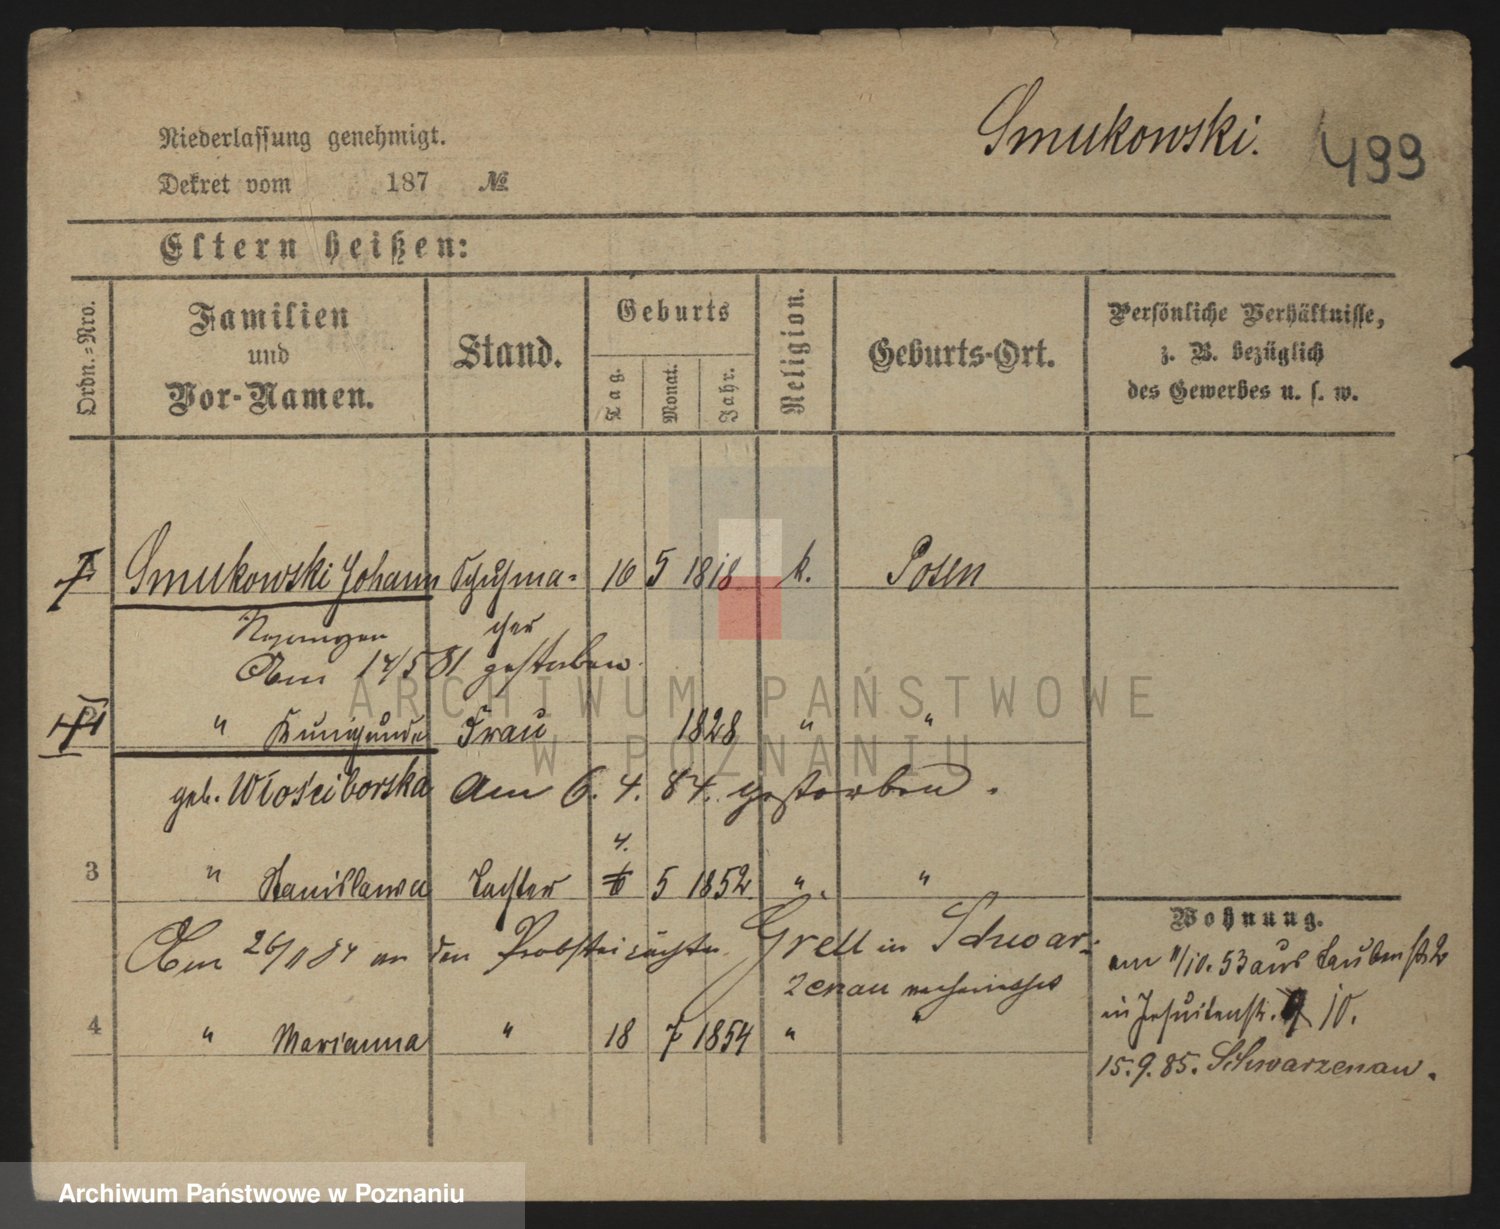 Smukowski.
499
Niederlassung genehmigt.
Dekret vom 187 №
Eltern heißen:
Ordn.-Nro.
Familien
und
Vor-Namen.
Stand.
Geburts
Tag.
Monat.
Jahr.
Religion.
Geburts-Ort.
Persönliche Verhältnisse,
z. B. bezüglich
des Gewerbes u. s. w.
Smukowski Johann Schuhma- 16 5 1818 k. Posen
cher
Am 14/5 81 gestorben.
" Kunigunde Frau 1828 " "
geb. Włościborska Am 6. 4. 84. gestorben.
4.
3 " Stanislawa Tochter 6 5 1852. " "
Am 26/11 84 an den Probsteipächter Grell in Schwar-
zenau verheirathet
4 " Marianna " 18 7 1854 " "
Wohnung.
am 1/10. 53 aus Taubenstr 2
in Jesuitenstr. 9 10.
15. 9. 85. Schwarzenau.
ARCHIWUM PAŃSTWOWE
W POZNANIU
Archiwum Państwowe w Poznaniu